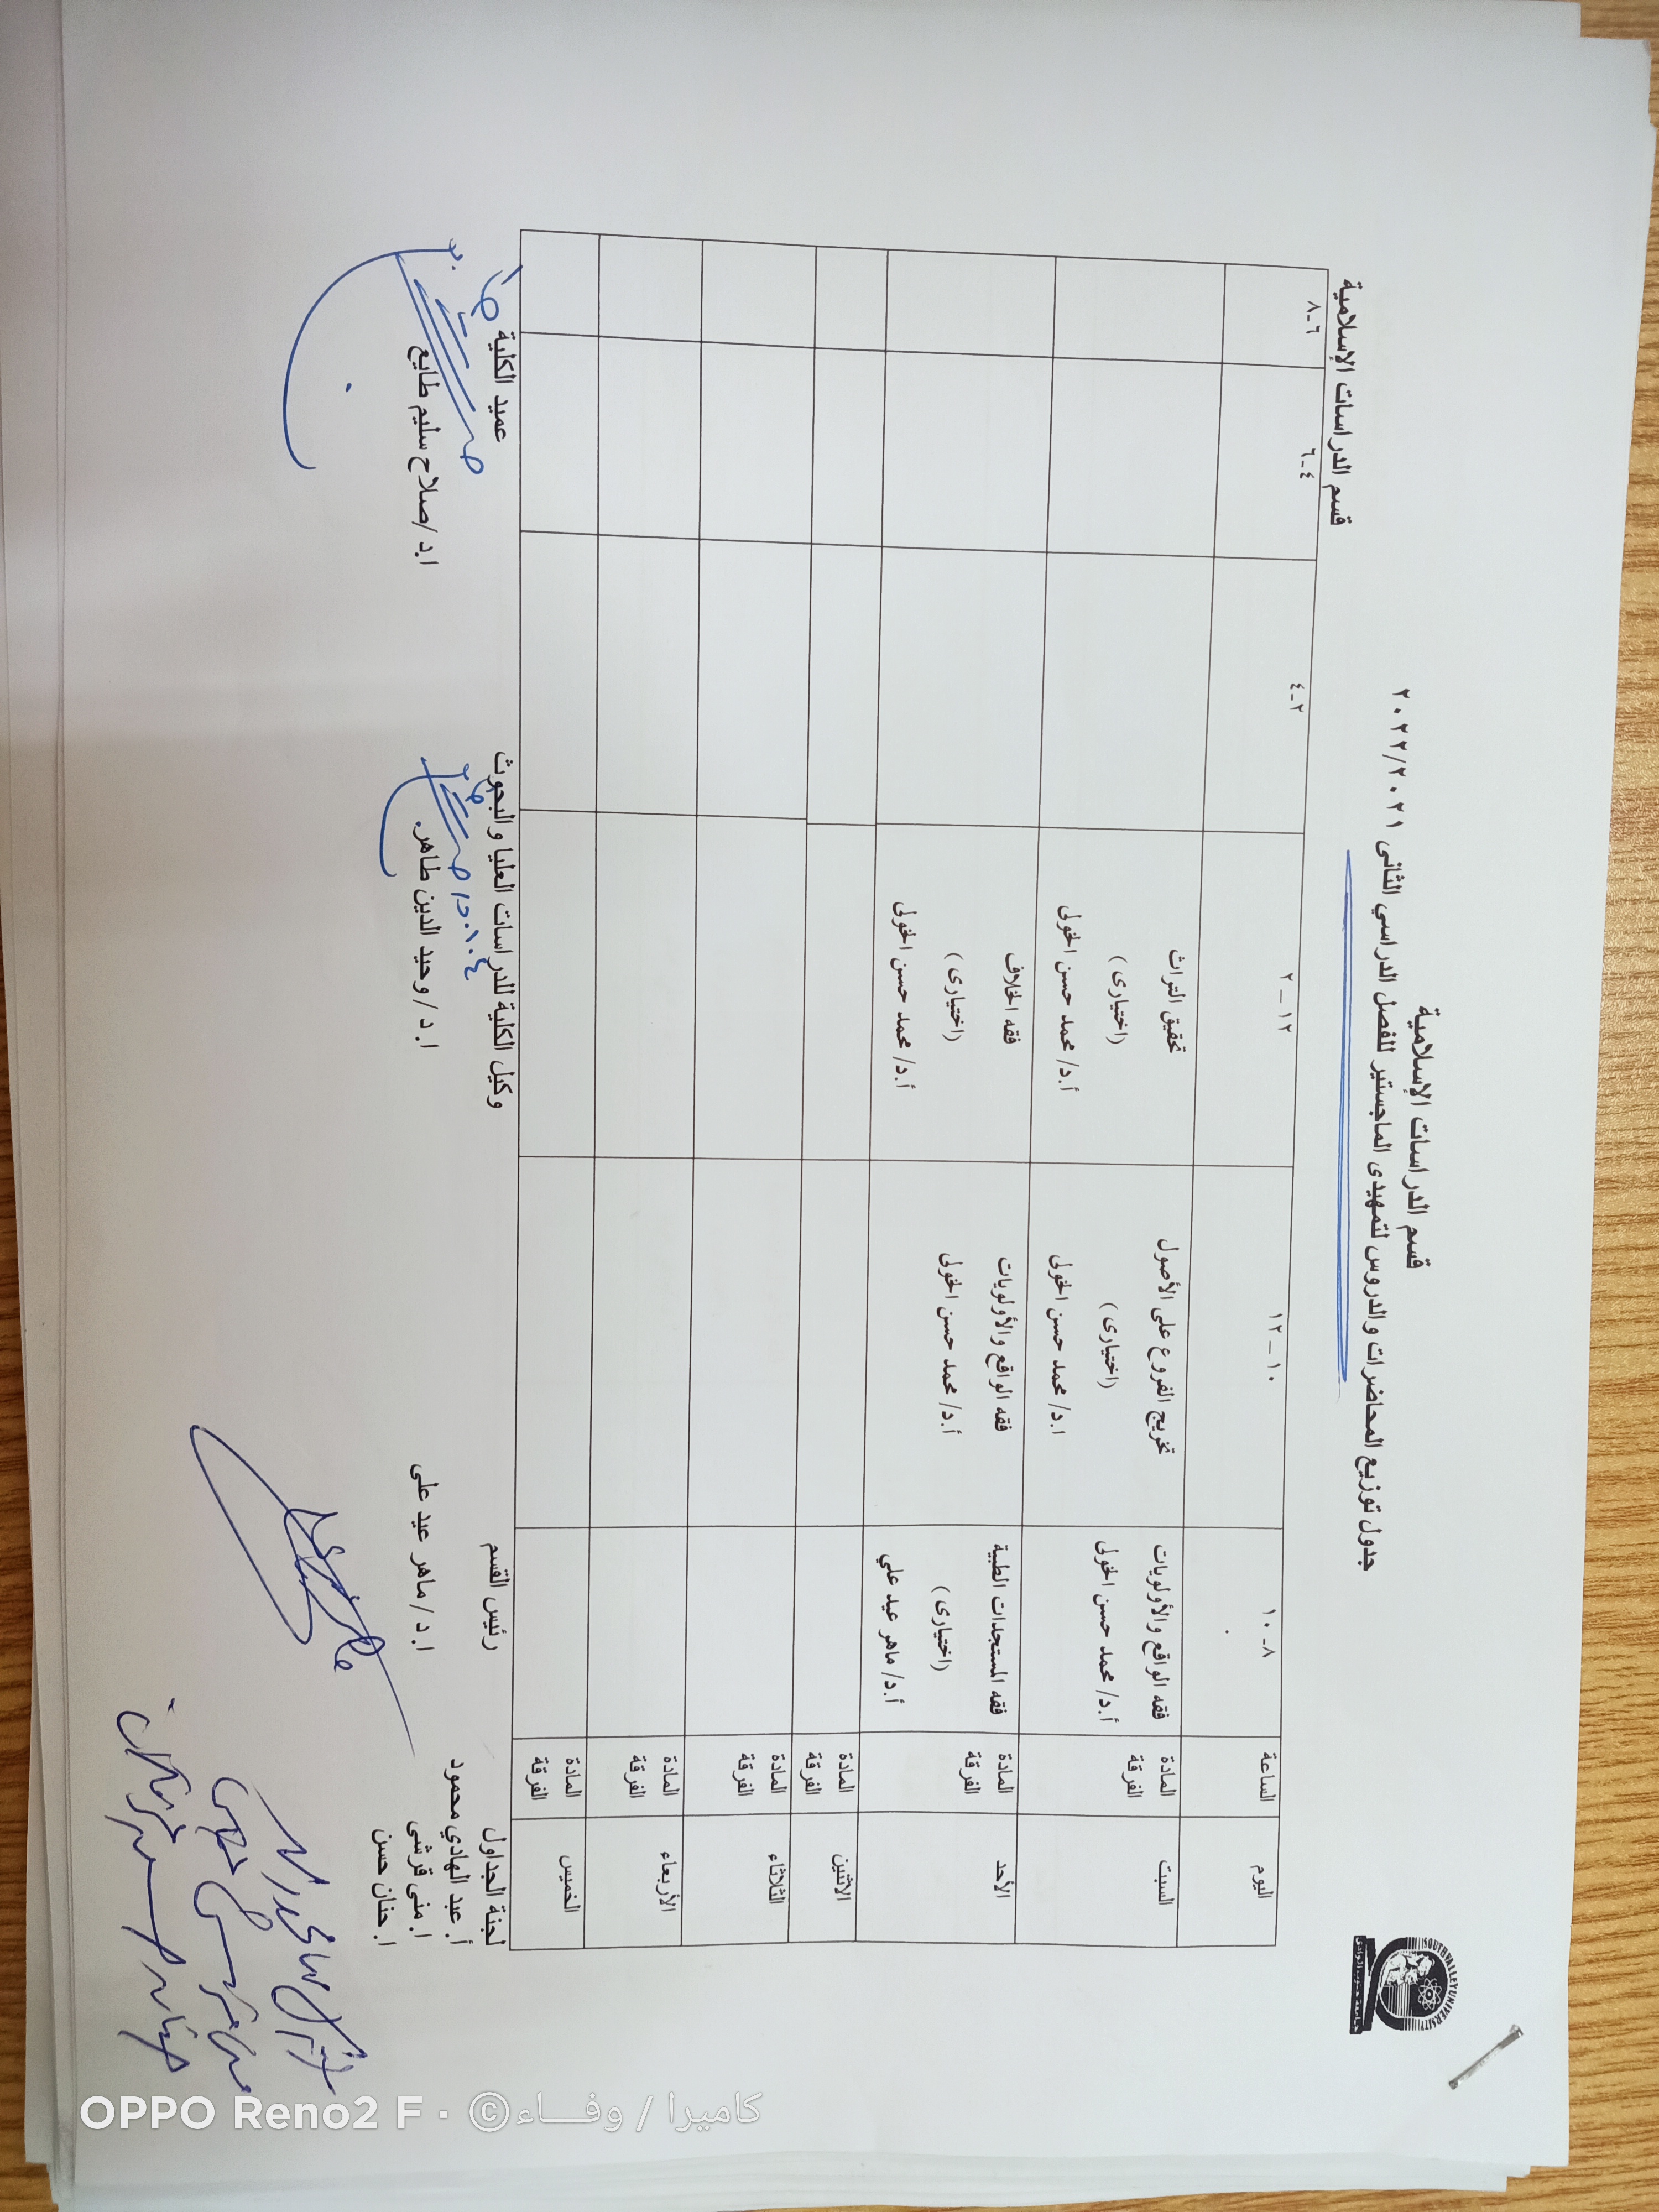 SOUTH VALLEY UNIVERSITY
جامعة جنوب الوادى
قسم الدراسات الإسلامية
جدول توزيع المحاضرات والدروس لتمهيدى الماجستير للفصل الدراسي الثانى ٢٠٢٢/٢٠٢١
قسم الدراسات الإسلامية
اليوم الساعة ٨-١٠ ١٠_١٢ ١٢_٢ ٢-٤ ٤-٦ ٦-٨
السبت المادة الفرقة
فقه الواقع والأولويات
أ.د/ محمد حسن الخولى
تخريج الفروع على الأصول
(اختيارى)
ا.د/ محمد حسن الخولى
تحقيق التراث
(اختيارى)
أ.د/ محمد حسن الخولى
الأحد المادة الفرقة
فقه المستجدات الطبية
(اختيارى)
أ.د/ ماهر عيد علي
فقه الواقع والأولويات
أ.د/ محمد حسن الخولى
فقه الخلاف
(اختيارى)
أ.د/ محمد حسن الخولى
الاثنين المادة الفرقة
الثلاثاء المادة الفرقة
الأربعاء المادة الفرقة
الخميس المادة الفرقة
لجنة الجداول رئيس القسم وكيل الكلية للدراسات العليا والبحوث عميد الكلية
أ. عبد الهادي محمود
ا. منى قرشى ا.د/ ماهر عيد على ا.د/ وحيد الدين طاهر. ا.د/ صلاح سليم طايع
ا. حنان حسن
OPPO Reno2 F · ©كاميرا / وفـــاء